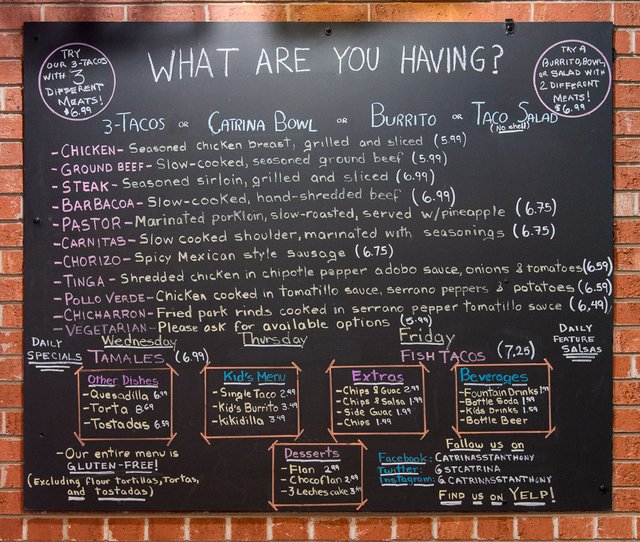 WHAT ARE YOU HAVING?
TRY
OUR 3-TACOS
WITH 3
DIFFERENT
MEATS!
$6.99
TRY A
BURRITO, BOWL,
OR SALAD WITH
2 DIFFERENT
MEATS!
$6.99
3-TACOS OR CATRINA BOWL OR BURRITO OR TACO SALAD
(No shell)
-CHICKEN- Seasoned chicken breast, grilled and sliced (5.99)
-GROUND BEEF- Slow-cooked, seasoned ground beef (5.99)
-STEAK- Seasoned sirloin, grilled and sliced (6.99)
-BARBACOA- Slow-cooked, hand-shredded beef (6.99)
-PASTOR- Marinated porkloin, slow-roasted, served w/pineapple (6.75)
-CARNITAS- Slow cooked shoulder, marinated with seasonings (6.75)
-CHORIZO- Spicy Mexican style sausage (6.75)
-TINGA- Shredded chicken in chipotle pepper adobo sauce, onions & tomatoes (6.59)
-POLLO VERDE- Chicken cooked in tomatillo sauce, serrano peppers & potatoes (6.59)
-CHICHARRON- Fried pork rinds cooked in serrano pepper tomatillo sauce (6.49)
-VEGETARIAN- Please ask for available options (5.99)
DAILY
SPECIALS
Wednesday Thursday Friday
TAMALES (6.99) FISH TACOS (7.25)
DAILY
FEATURE
SALSAS
Other Dishes
-Quesadilla 6.99
-Torta 8.69
-Tostadas 6.59
Kid's Menu
-Single Taco 2.49
-Kid's Burrito 3.49
-Kikidilla 3.49
Extras
-Chips & Guac 2.99
-Chips & Salsa 1.99
-Side Guac 1.99
-Chips 1.99
Beverages
-Fountain Drinks 1.99
-Bottle Soda 1.99
-Kids Drinks 1.59
-Bottle Beer
-Our entire menu is
GLUTEN-FREE!
(Excluding flour tortillas, Tortas,
and tostadas)
Desserts
-Flan 2.99
-Chocoflan 2.99
-3 Leches cake
Follow us on
Facebook: CATRINASSTANTHONY
Twitter: @STCATRINA
Instagram: @CATRINASSTANTHONY
FIND US ON YELP!